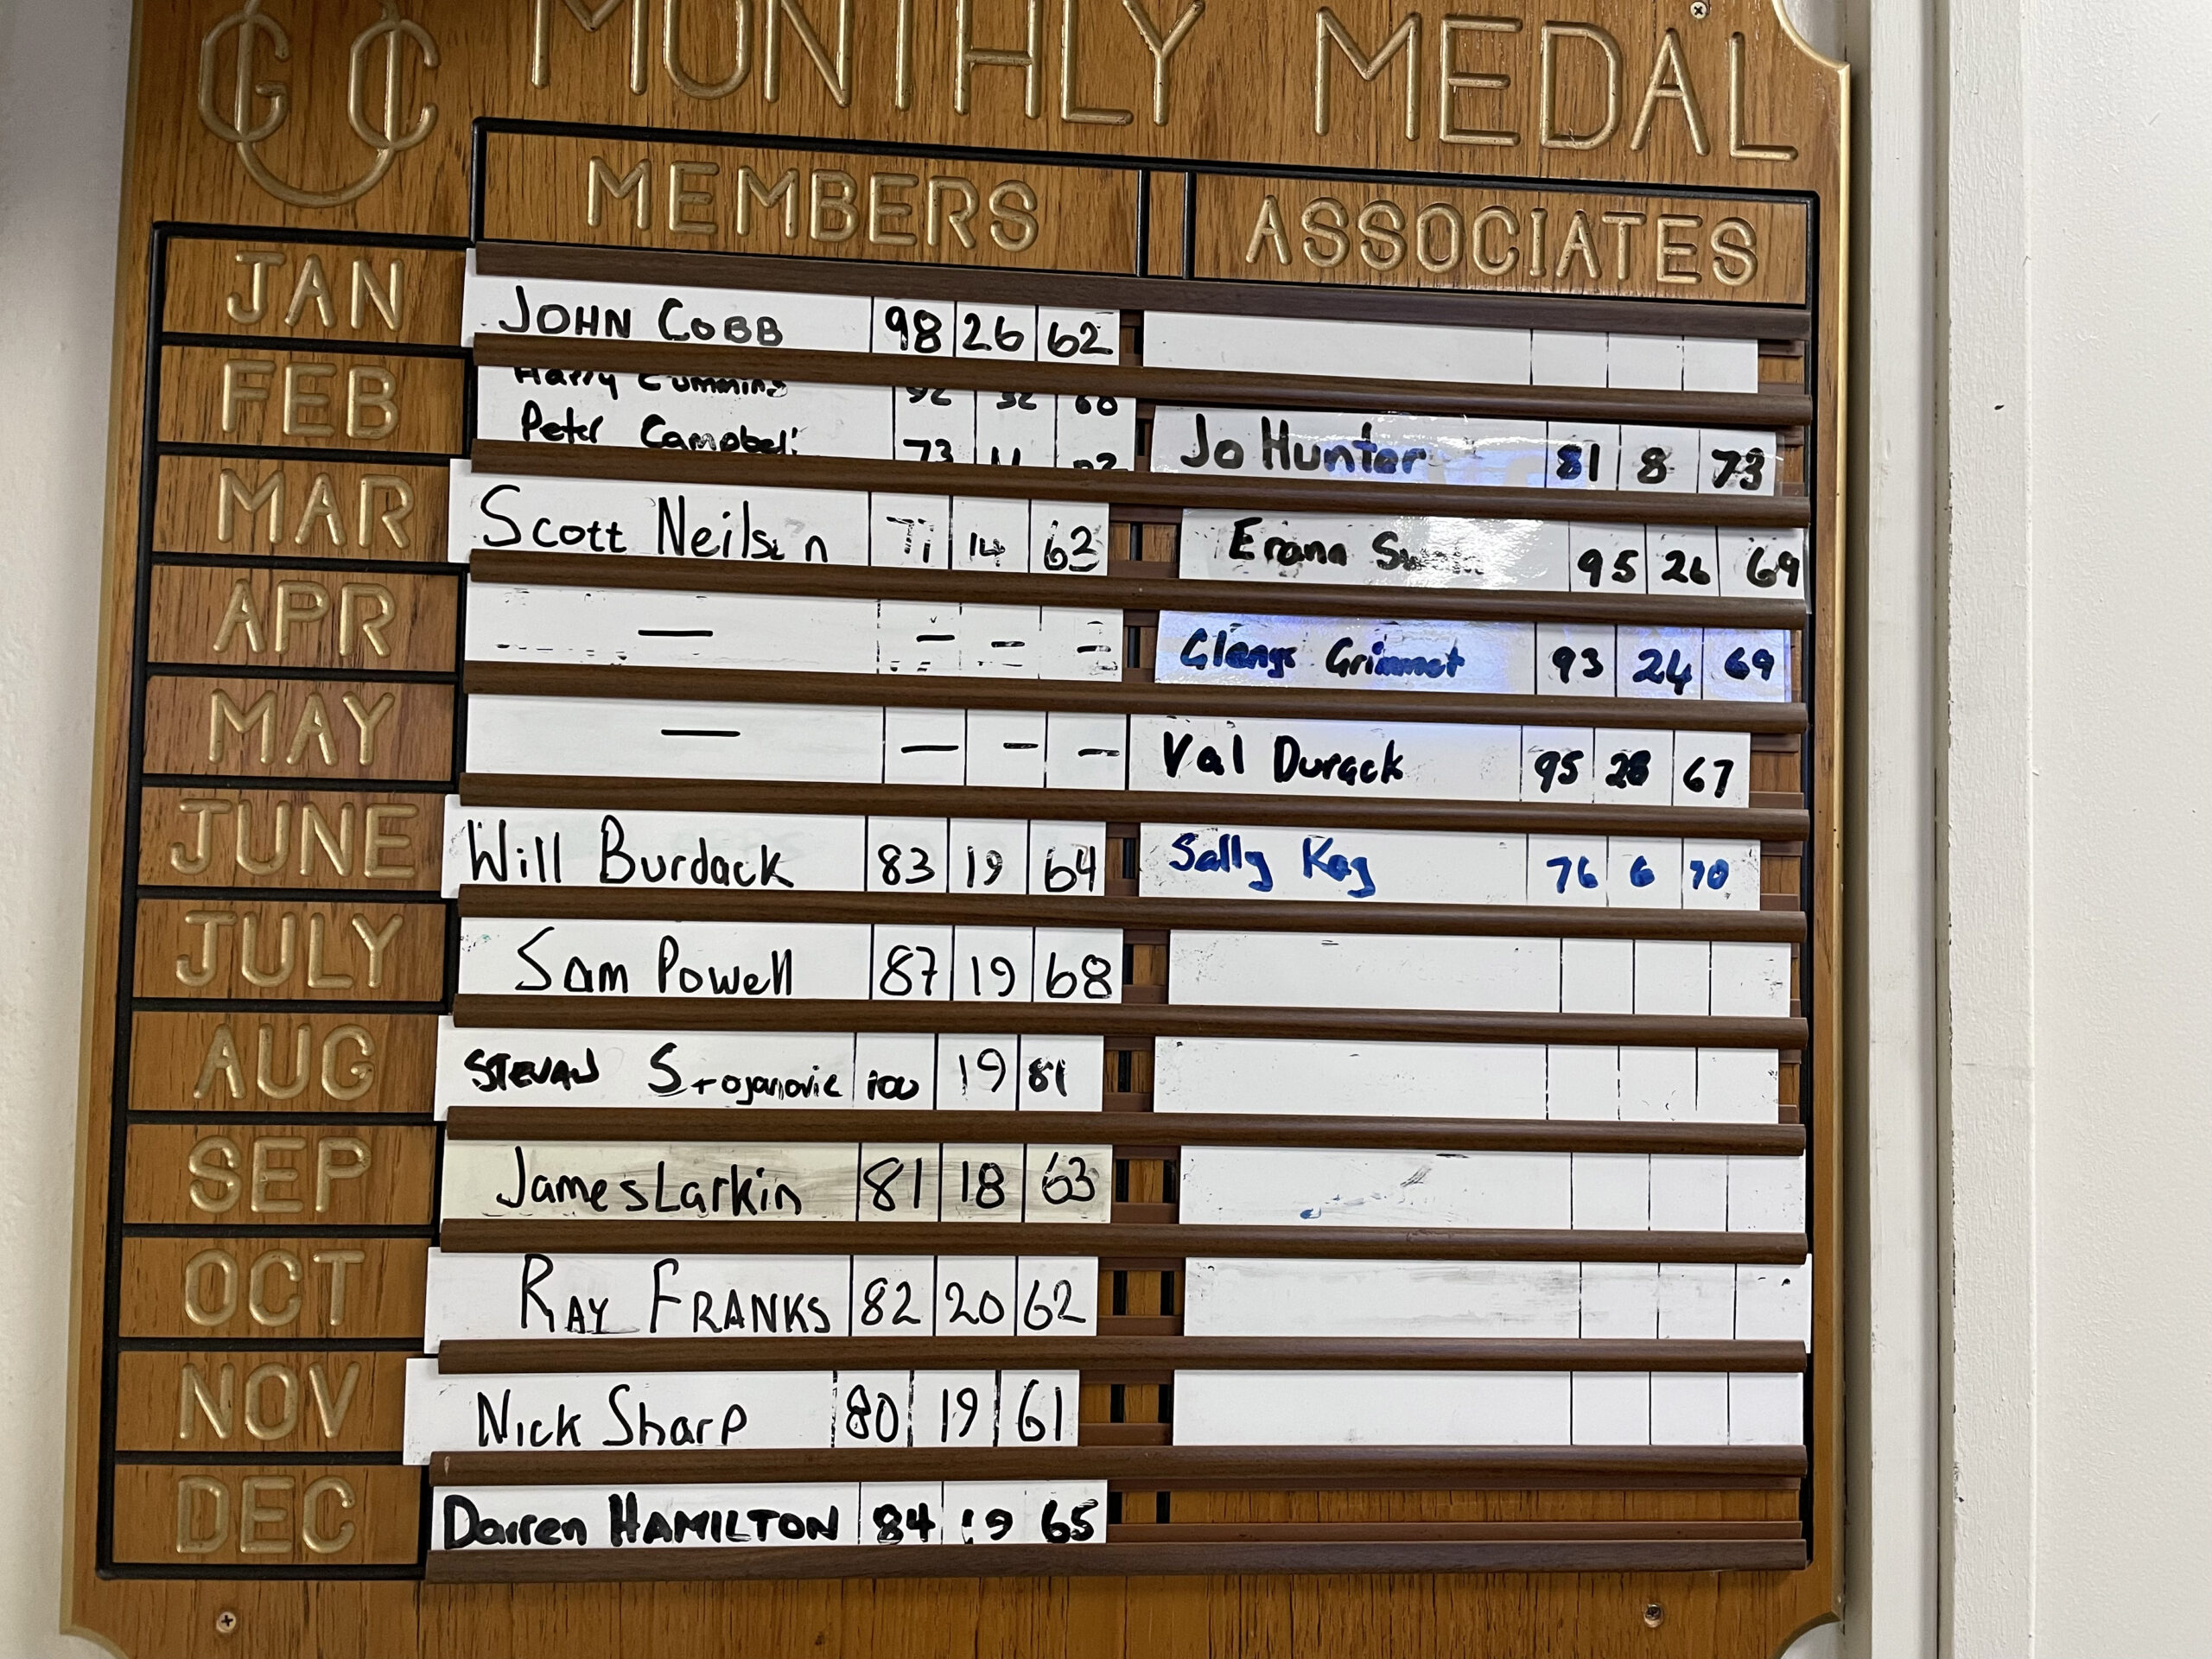 GCC
MONTHLY MEDAL
MEMBERS ASSOCIATES
JAN JOHN COBB 98 26 62
FEB Harry Cumming 92 32 60
Peter Campbell 73 11 Jo Hunter 81 8 73
MAR Scott Neilson 14 62 Erana 95 26 69
APR — — — — Glenys Grimmet 93 24 69
MAY — — — — Val Durack 95 28 67
JUNE Will Burdack 83 19 64 Sally Kay 76 6 70
JULY Sam Powell 87 19 68
AUG STEVAN Strojanovic 100 19 81
SEP James Larkin 81 18 63
OCT RAY FRANKS 82 20 62
NOV Nick Sharp 80 19 61
DEC Darren HAMILTON 84 19 65